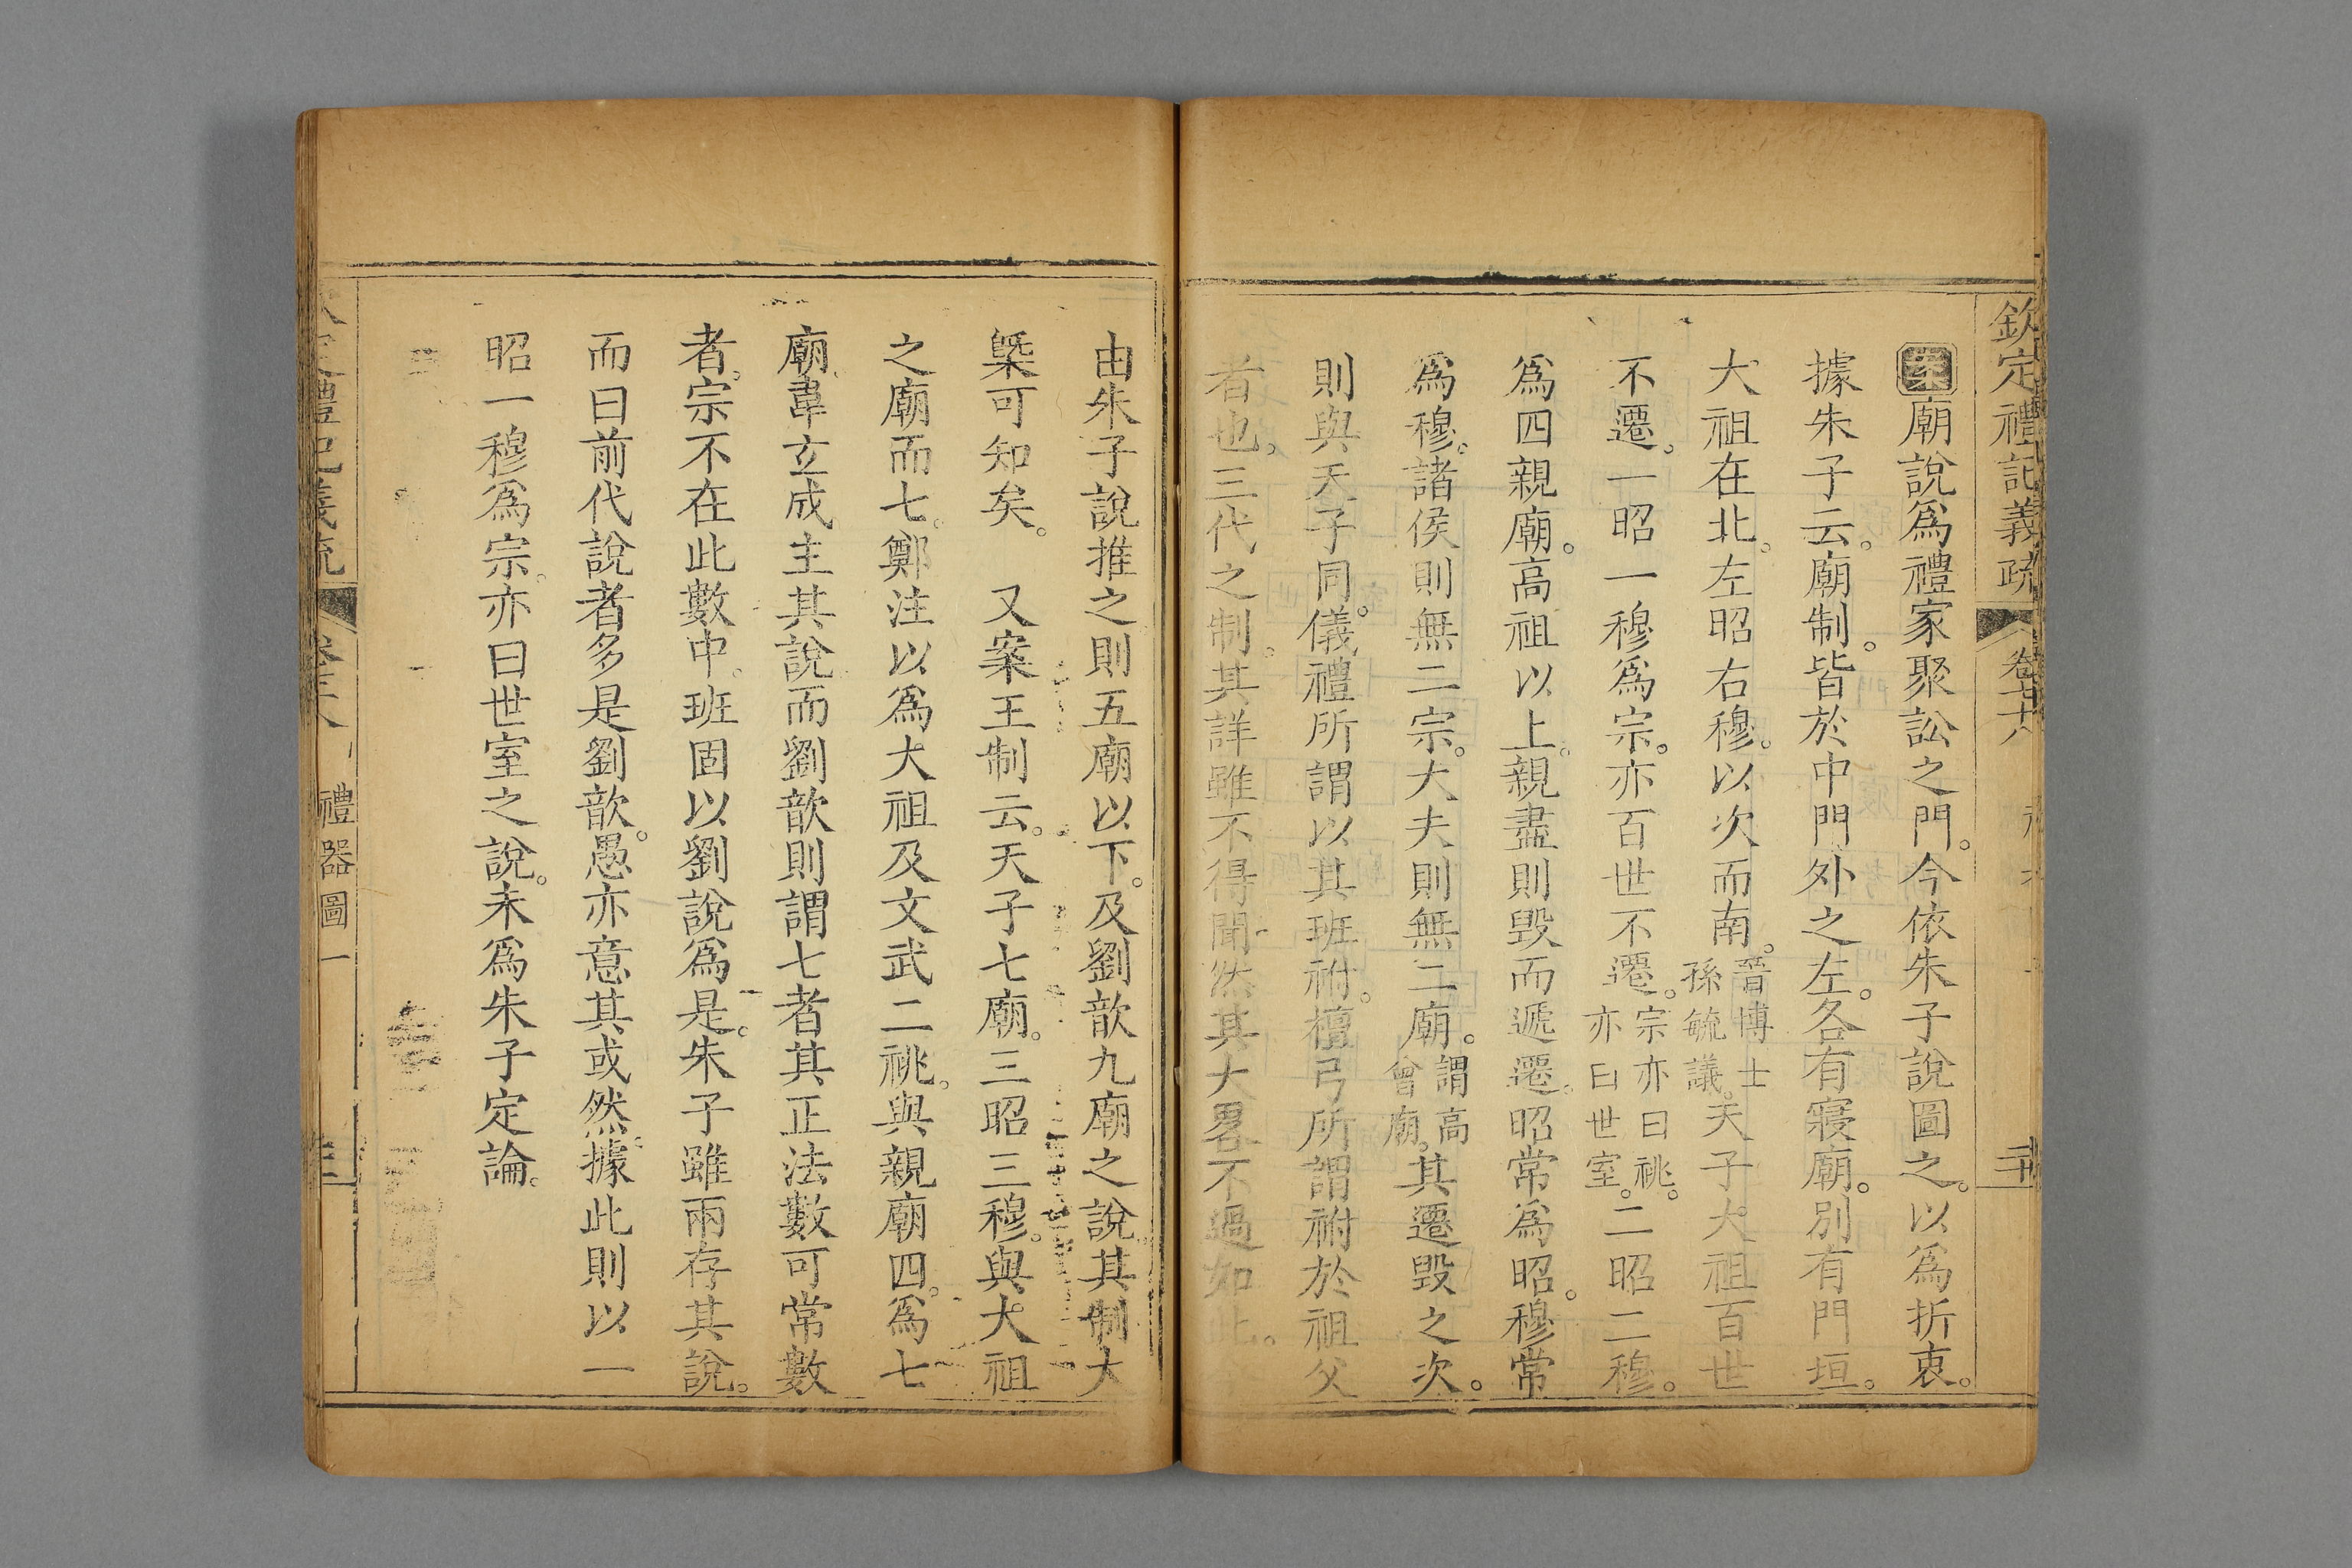 欽定禮記義疏
案廟說爲禮家聚訟之門。今依朱子說圖之。以爲折衷。
據朱子云。廟制。皆於中門外之左。各有寢廟。別有門垣。
大祖在北。左昭右穆。以次而南。晉博士孫毓議。天子大祖百世
不遷。一昭一穆爲宗。亦百世不遷。宗亦曰祧。亦曰世室。二昭二穆。
爲四親廟。高祖以上。親盡則毀而遞遷。昭常爲昭。穆常
爲穆。諸侯則無二宗。大夫則無二廟。謂高曾廟。其遷毀之次。
則與天子同。儀禮所謂以其班祔。檀弓所謂祔於祖父
者也。三代之制。其詳雖不得聞。然其大畧不過如此。
由朱子說推之則五廟以下。及劉歆九廟之說。其制大
槩可知矣。 又案王制云。天子七廟。三昭三穆。與大祖
之廟而七。鄭注以爲大祖及文武二祧。與親廟四。爲七
廟。韋玄成主其說而劉歆則謂七者其正法數可常數
者。宗不在此數中。班固以劉說爲是。朱子雖兩存其說。
而曰前代說者多是劉歆。愚亦意其或然。據此則以一
昭一穆爲宗。亦曰世室之說。未爲朱子定論。
禮器圖一